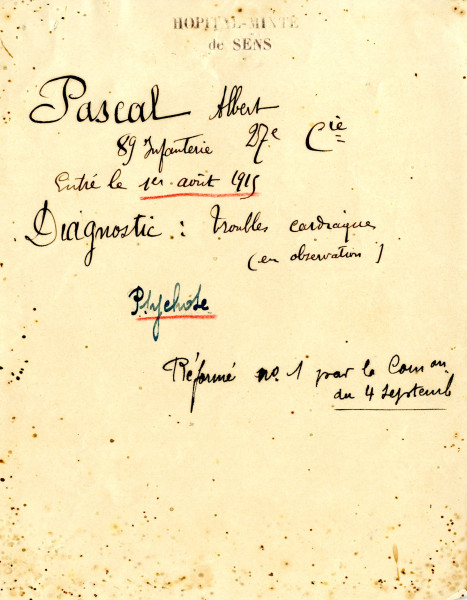 HOPITAL-MIXTE
de SENS
Pascal Albert
89 Infanterie 27e Cie
Entré le 1er août 1915
Diagnostic : troubles cardiaques
(en observation)
Psychose
Réformé no 1 par la Comon
du 4 Septemb